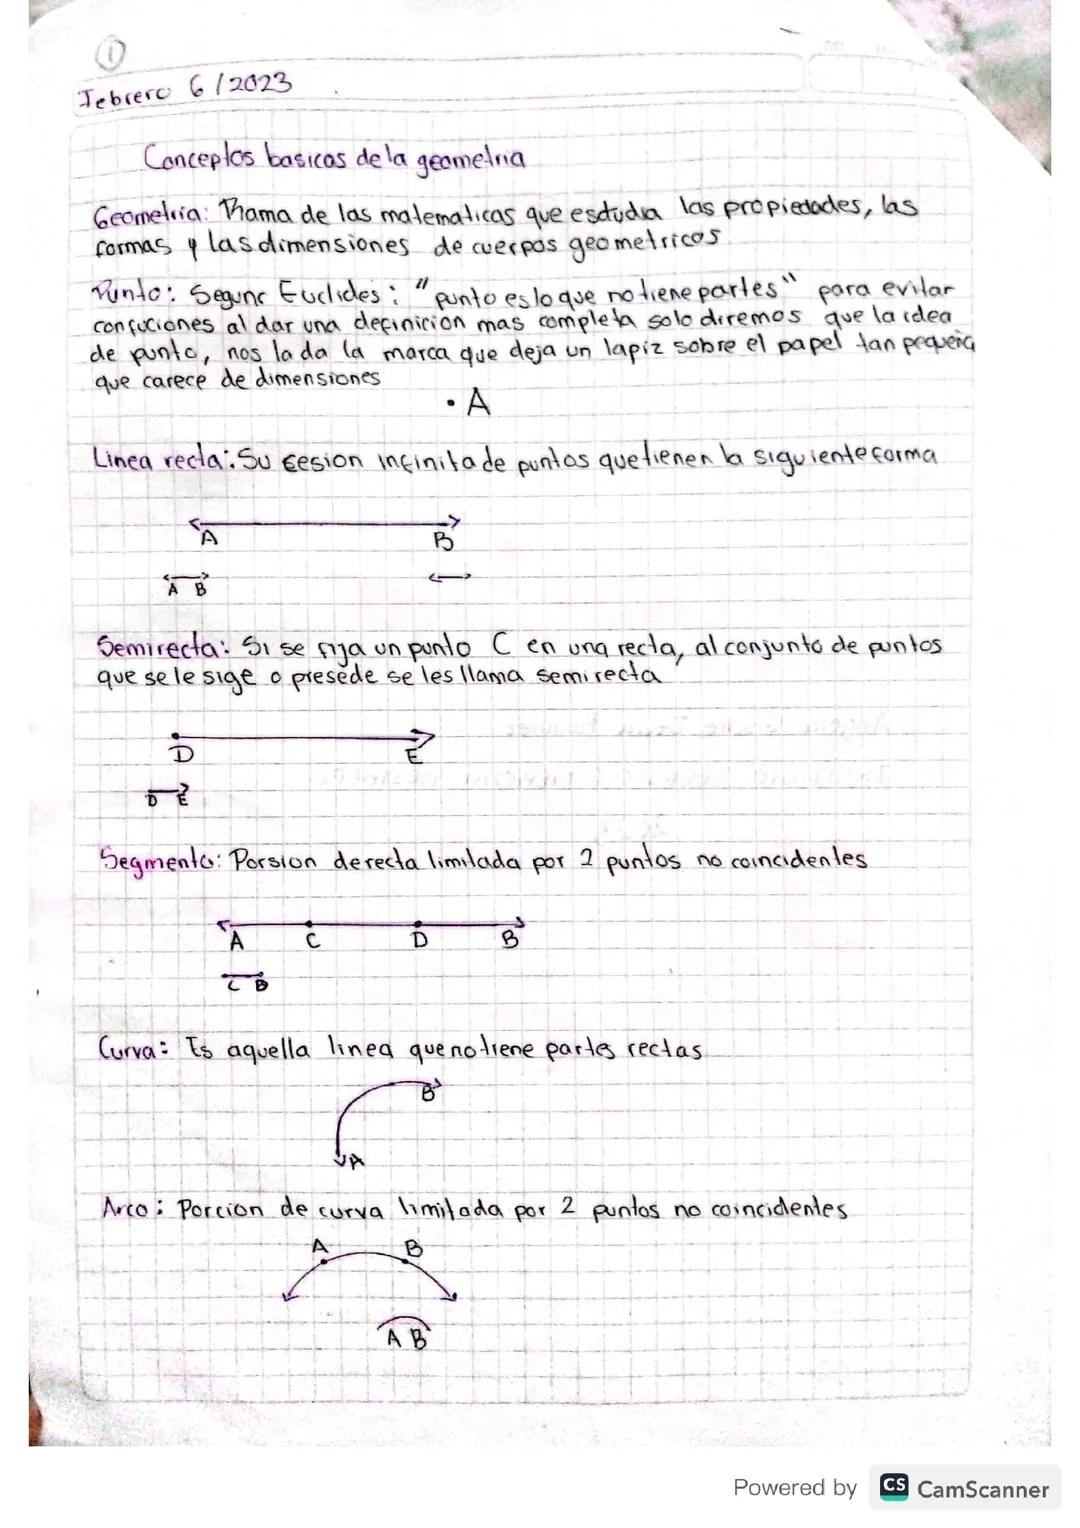 1
Febrero 6/2023
Conceptos basicos de la geometria
Geometria: Rama de las matematicas que esdudia las propiedades, las
formas y las dimensiones de cuerpos geometricos
Punto: Segunr Euclides: "punto es lo que no tiene partes" para evitar
confuciones al dar una definicion mas completa solo diremos que la idea
de punto, nos la da la marca que deja un lapiz sobre el papel tan pequeña
que carece de dimensiones
• A
Linea recta: Su cesion infinita de puntos que tienen la siguiente forma
A B
A B
Semirecta: Si se fija un punto C en una recta, al conjunto de puntos
que se le sige o presede se les llama semirecta
D E
D E
Segmento: Porsion de recta limitada por 2 puntos no coincidentes
A C D B
C D
Curva: Es aquella linea que no tiene partes rectas
B
A
Arco: Porcion de curva limitada por 2 puntos no coincidentes
A B
A B
Powered by CS CamScanner